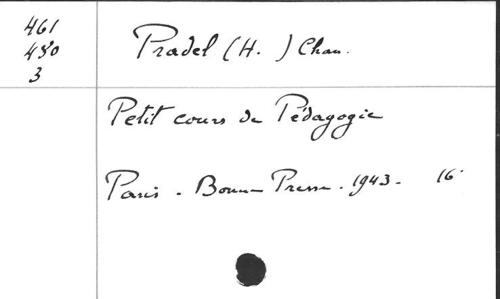 461
480
3
Pradel (H. ) Chan.
Petit cours de Pédagogie
Paris - Bonne Presse. 1943 - 16°